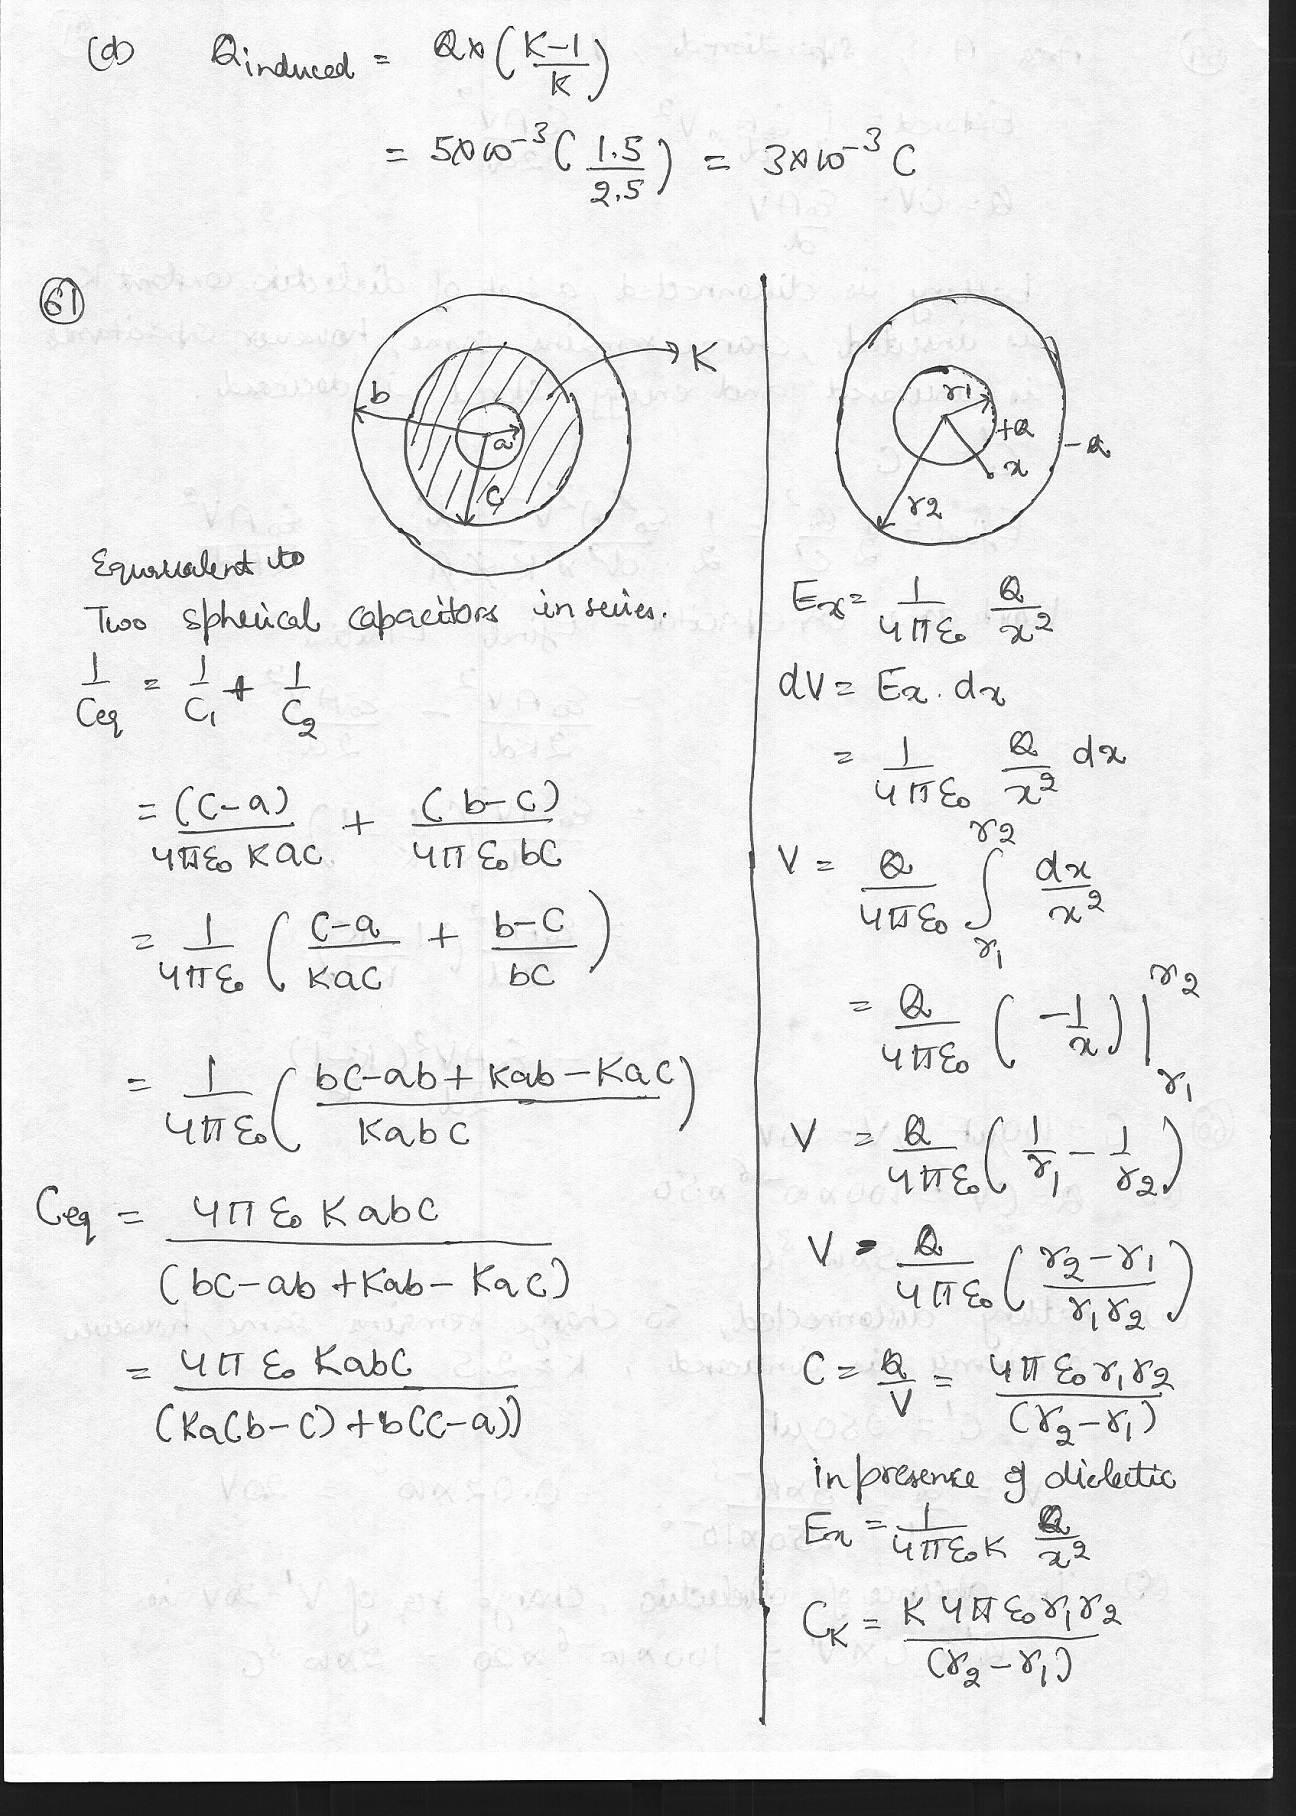 (d) Qinduced = Q×(K-1/K)
= 5×10⁻³(1.5/2.5) = 3×10⁻³ C
61
b
a
c
K
Equivalent to
Two spherical capacitors in series.
1/Ceq = 1/C₁ + 1/C₂
= (c-a)/4πε₀ Kac + (b-c)/4πε₀ bc
= 1/4πε₀ (c-a/Kac + b-c/bc)
= 1/4πε₀ (bc-ab+Kab-Kac/Kabc)
Ceq = 4πε₀ Kabc/(bc-ab+Kab-Kac)
= 4πε₀ Kabc/(Ka(b-c)+b(c-a))
r1
+Q
-Q
x
r2
Ex = 1/4πε₀ Q/x²
dV = Ex. dx
= 1/4πε₀ Q/x² dx
V = Q/4πε₀ ∫r₁^r₂ dx/x²
= Q/4πε₀ (-1/x)|r₁^r₂
V = Q/4πε₀ (1/r₁ - 1/r₂)
V = Q/4πε₀ (r₂-r₁/r₁r₂)
C = Q/V = 4πε₀r₁r₂/(r₂-r₁)
in presence of dielectic
Ex = 1/4πε₀K Q/x²
CK = K4πε₀r₁r₂/(r₂-r₁)